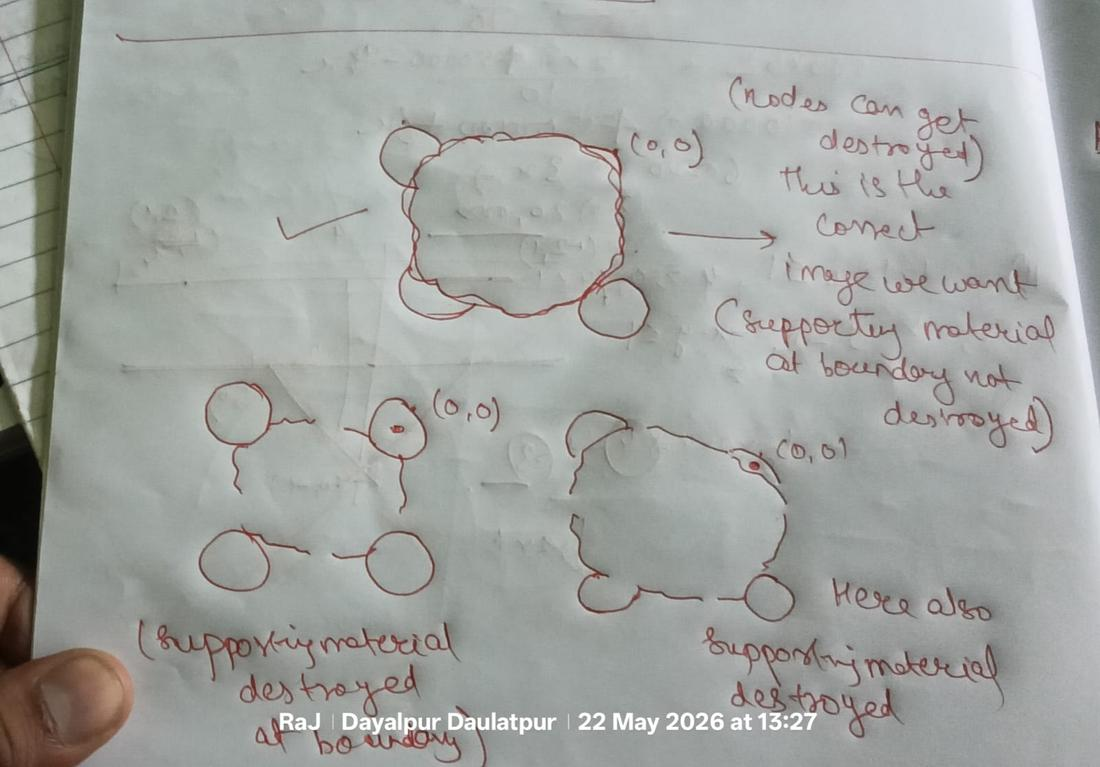 (nodes can get
destroyed)
(0,0)
this is the
correct
image we want
(supporting material
at boundary not
destroyed)
(0,0)
(0,0)
Here also
supporting material
destroyed
(supporting material
destroyed
at boundary)
RaJ | Dayalpur Daulatpur | 22 May 2026 at 13:27